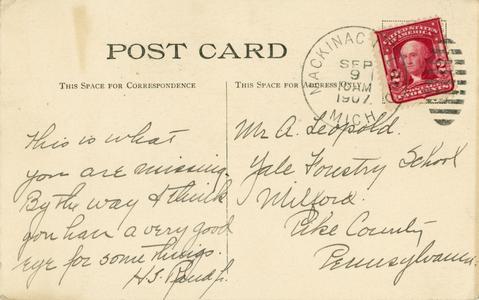 POST CARD
THIS SPACE FOR CORRESPONDENCE
THIS SPACE FOR ADDRESS
MACKINAC
SEP
9
10 AM
1907
MICH
UNITED STATES
2 2
TWO CENTS
This is what
you are missing.
By the way I think
you have a very good
eye for some things.
Mr A. Leopold.
Yale Forestry School
Milford.
Pike County
Pennsylvania.